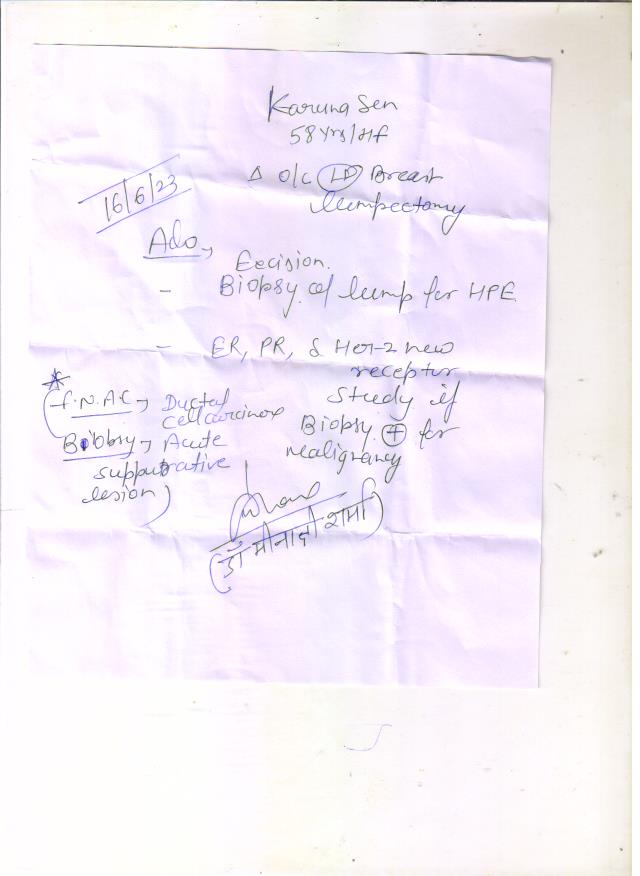 Karuna Sen
58 yrs/Hf
16/6/23
Δ O/C (Lt) Breast
lumpectomy
Adv,
Excision.
- Biopsy of lump for HPE
- ER, PR, & Her-2 new
receptor
study if
Biopsy (+) for
malignancy
*
(F.N.A.C → Ductal
cell carcinoma
Biobsy → Acute
suppurative
lesion)
(डॉ मीनाक्षी शर्मा)